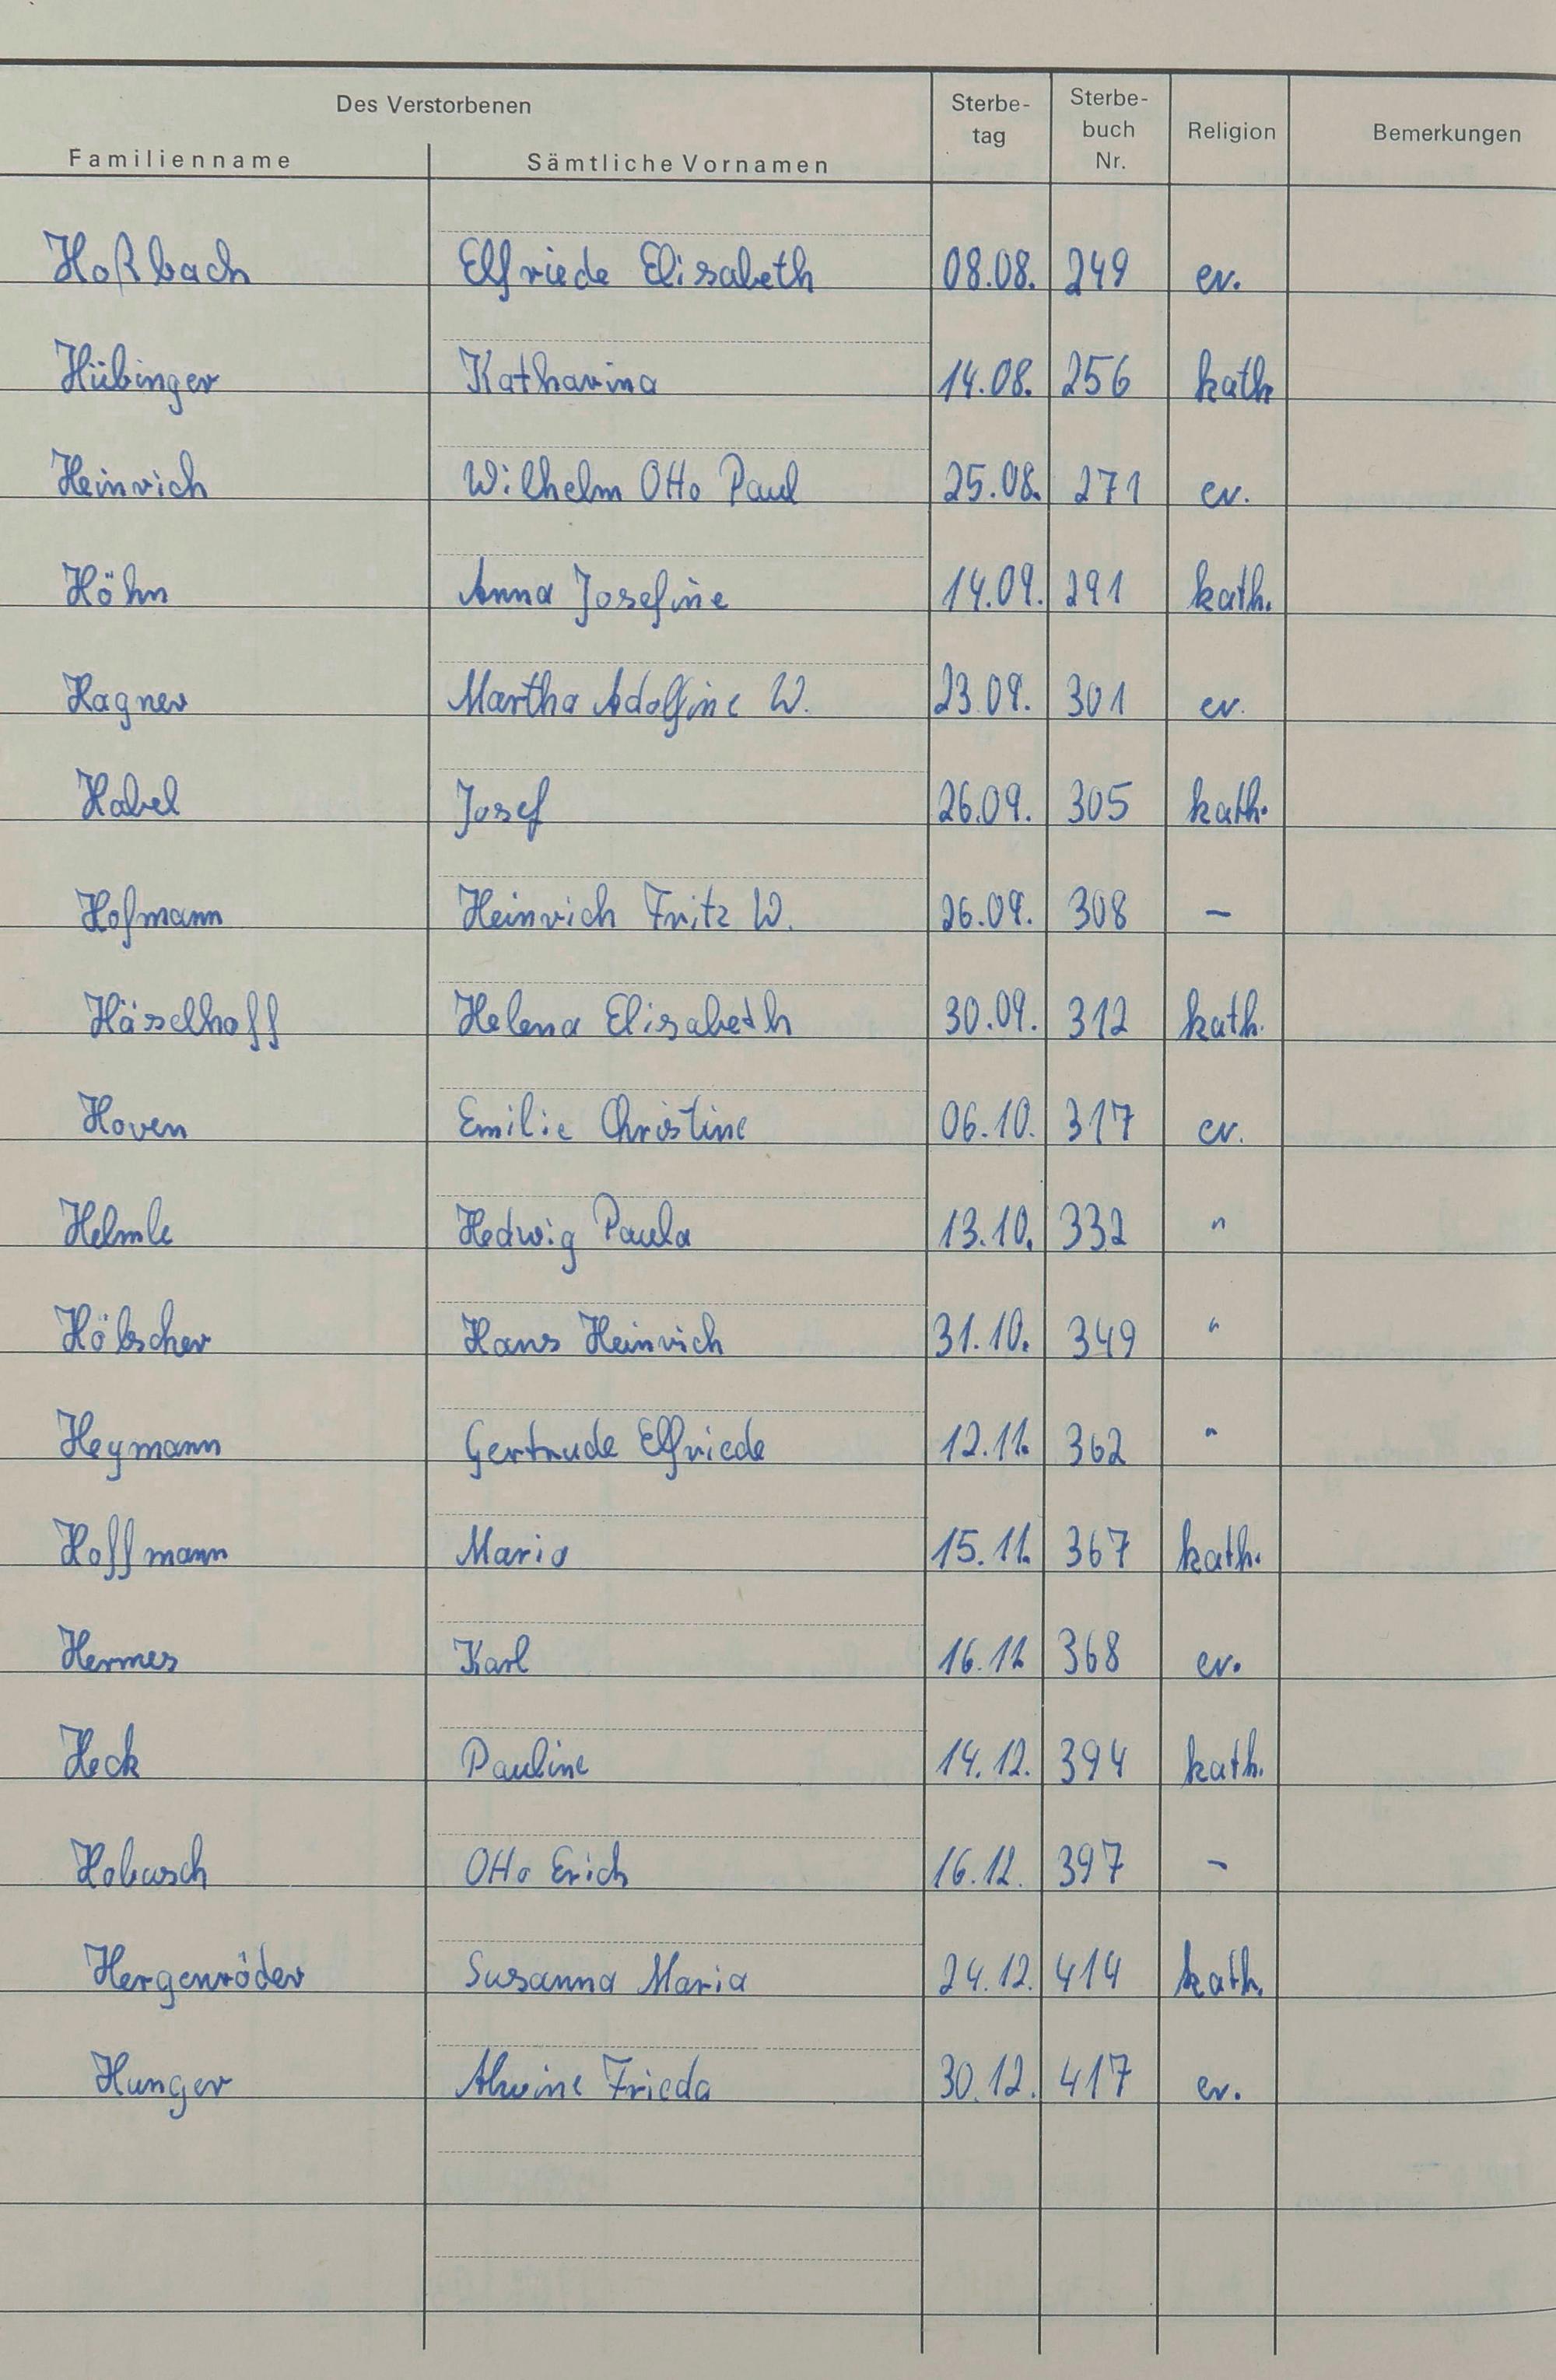 Des Verstorbenen
Familienname Sämtliche Vornamen Sterbe-tag Sterbe-buch Nr. Religion Bemerkungen
Hoßbach Elfriede Elisabeth 08.08. 249 ev.
Hübinger Katharina 14.08. 256 kath
Heinrich Wilhelm Otto Paul 25.08. 271 ev.
Höhn Anna Josefine 14.09. 291 kath.
Hagner Martha Adolfine W. 23.09. 301 ev.
Habel Josef 26.09. 305 kath.
Hofmann Heinrich Fritz W. 26.09. 308 –
Häselhoff Helena Elisabeth 30.09. 312 kath.
Hoven Emilie Christine 06.10. 317 ev.
Helmle Hedwig Paula 13.10. 332 "
Hölscher Hans Heinrich 31.10. 349 "
Heymann Gertrude Elfriede 12.11. 362 "
Hoffmann Maria 15.11. 367 kath.
Hermes Karl 16.11. 368 ev.
Heck Pauline 14.12. 394 kath.
Hobusch Otto Erich 16.12. 397 –
Hergenröder Susanna Maria 24.12. 414 kath.
Hunger Alwine Frieda 30.12. 417 ev.